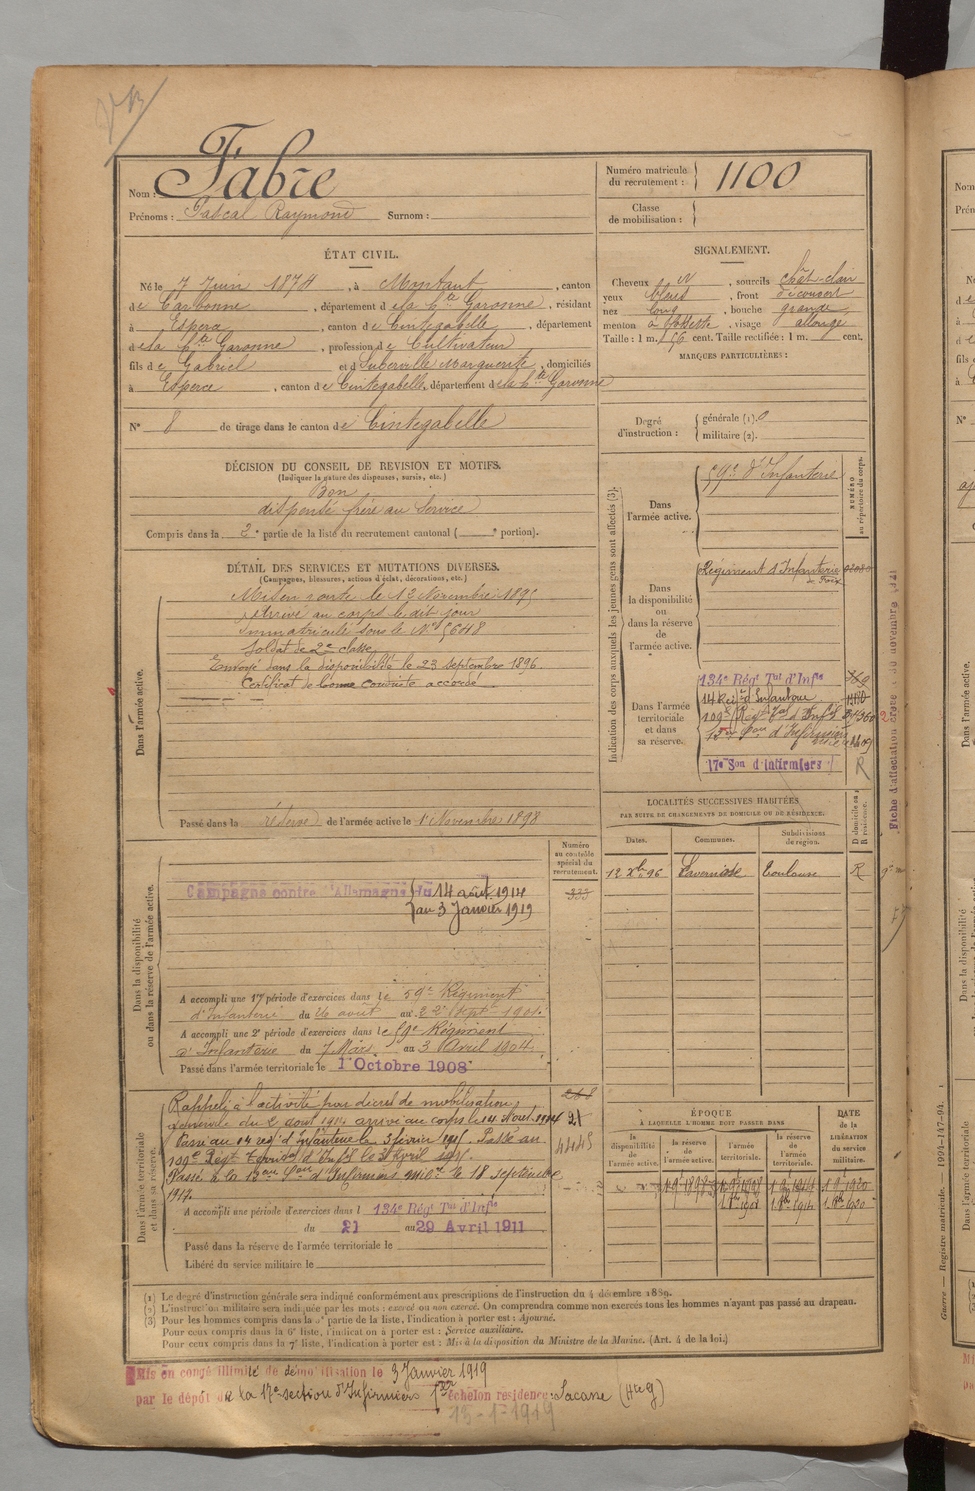 Nom : Fabre
Prénoms : Pascal Raymond Surnom :
Numéro matricule du recrutement : 1100
Classe de mobilisation :
ÉTAT CIVIL.
Né le 7 Juin 1874, à Montaut, canton
de Carbonne, département de la hte Garonne, résidant
à Esperce, canton de Cintegabelle, département
de la hte Garonne, profession de Cultivateur
fils de Gabriel et de Suberville Marguerite, domiciliés
à Esperce, canton de Cintegabelle, département de la hte Garonne
N° 8 de tirage dans le canton de Cintegabelle
SIGNALEMENT.
Cheveux N, sourcils chât-clair
yeux bleus, front découvert
nez long, bouche grande
menton à fossette, visage allongé
Taille : 1 m. 56 cent. Taille rectifiée : 1 m. cent.
MARQUES PARTICULIÈRES :
Degré d'instruction : générale (1). 0
militaire (2).
DÉCISION DU CONSEIL DE REVISION ET MOTIFS.
(Indiquer la nature des dispenses, sursis, etc.)
Bon
dispensé frère au Service
Compris dans la 2e partie de la liste du recrutement cantonal ( e portion).
DÉTAIL DES SERVICES ET MUTATIONS DIVERSES.
(Campagnes, blessures, actions d'éclat, décorations, etc.)
Dans l'armée active.
Mis en route le 13 Novembre 1895
Arrivé au corps le dit jour
Immatriculé sous le N° 5648
Soldat de 2e classe
Envoyé dans la disponibilité le 23 septembre 1896.
Certificat de bonne conduite accordé
Passé dans la réserve de l'armée active le 1 Novembre 1898
Indication des corps auxquels les jeunes gens sont affectés (3).
NUMÉRO au répertoire du corps.
Dans l'armée active.
59e d'Infanterie
Dans la disponibilité ou dans la réserve de l'armée active.
Régiment d'Infanterie de Foix
Dans l'armée territoriale et dans sa réserve.
134e Régt Tal d'Infie
14 Régt d'Infanterie
109e Régt Tal d'Infie
13me Son d'Infirmiers
17e Son d'Infirmiers
R
Fiche d'affectation
LOCALITÉS SUCCESSIVES HABITÉES
PAR SUITE DE CHANGEMENTS DE DOMICILE OU DE RÉSIDENCE.
Dates. Communes. Subdivisions de région. D domicile ou R résidence.
12 Xbre 96 Lavernose Toulouse R
Dans la disponibilité ou dans la réserve de l'armée active.
Numéro au contrôle spécial du recrutement.
333
Campagne contre l'Allemagne du 14 août 1914
au 3 Janvier 1919
A accompli une 1re période d'exercices dans le 59e Régiment
d'Infanterie du 26 août au 22 Sept 1901.
A accompli une 2e période d'exercices dans le 59e Régiment
d'Infanterie du 7 Mars au 3 Avril 1904.
Passé dans l'armée territoriale le 1 Octobre 1908
Dans l'armée territoriale et dans sa réserve.
Rappelé à l'activité par décret de mobilisation
générale du 2 août 1914 arrivé au corps le 14 Aout 1914
Passé au 14 régt d'Infanterie le 3 février 1915. Passé au
109e Régt Territal d'Infie le
Passé à la 13me Son d'Infirmiers milit. le 18 septembre
1917.
4445
A accompli une période d'exercices dans l 134e Régt Tal d'Infie
du 21 au 29 Avril 1911
Passé dans la réserve de l'armée territoriale le
Libéré du service militaire le
ÉPOQUE
À LAQUELLE L'HOMME DOIT PASSER DANS
DATE de la LIBÉRATION du service militaire.
la disponibilité de l'armée active. la réserve de l'armée active. l'armée territoriale. la réserve de l'armée territoriale.
(1) Le degré d'instruction générale sera indiqué conformément aux prescriptions de l'instruction du 4 décembre 1889.
(2) L'instruction militaire sera indiquée par les mots : exercé ou non exercé. On comprendra comme non exercés tous les hommes n'ayant pas passé au drapeau.
(3) Pour les hommes compris dans la 5e partie de la liste, l'indication à porter est : Ajourné.
Pour ceux compris dans la 6e liste, l'indication à porter est : Service auxiliaire.
Pour ceux compris dans la 7e liste, l'indication à porter est : Mis à la disposition du Ministre de la Marine. (Art. 4 de la loi.)
Mis en congé illimité de démobilisation le 3 Janvier 1919
par le dépôt de la 17e section d'Infirmiers échelon residence: Lacasse (Hte G)
15-1-1919
Guerre — Registre matricule. — 1994-147-94.